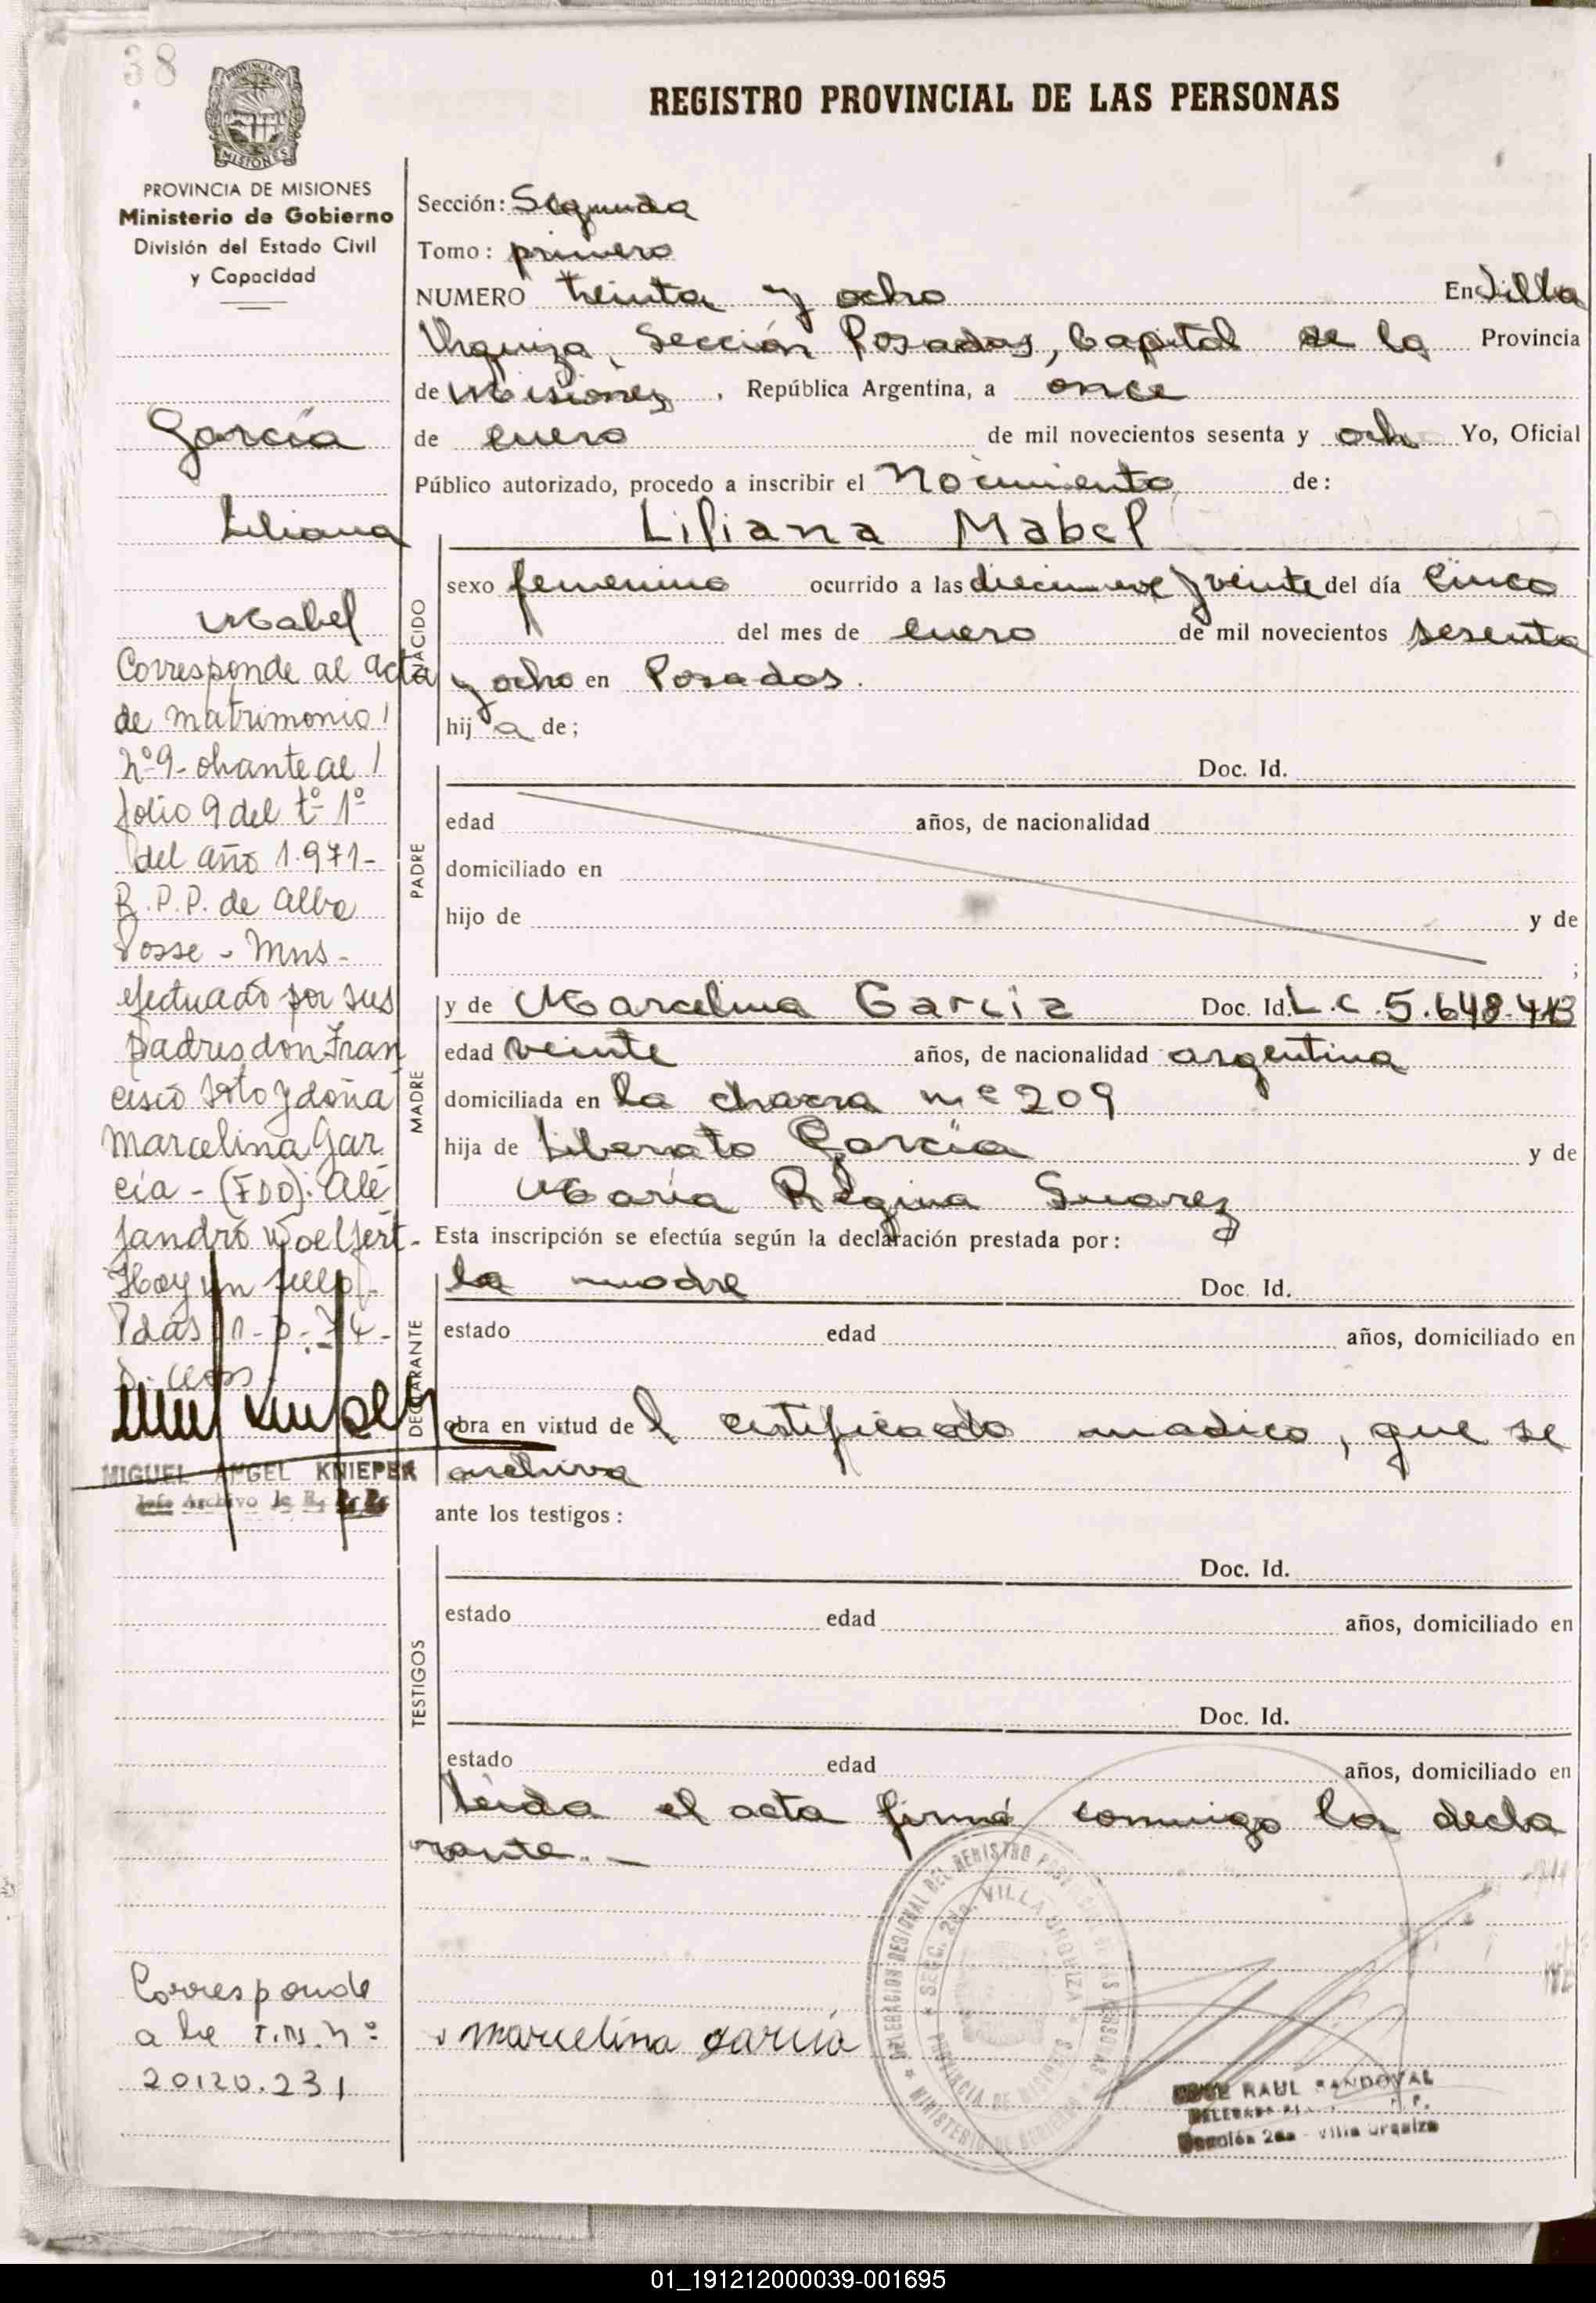 38
PROVINCIA DE
MISIONES
REGISTRO PROVINCIAL DE LAS PERSONAS
PROVINCIA DE MISIONES
Ministerio de Gobierno
División del Estado Civil
y Capacidad
García
Liliana
Mabel
Corresponde al acta
de matrimonio
nº 9- obrante al
folio 9 del tº 1º
del año 1.971-
R.P.P. de Alba
Posse - Mns-
efectuado por sus
padres don Fran
cisco Soto y doña
Marcelina Gar
cía - (FDO): Ale
jandro Woelfert-
Hay un sello-
Pdas
MIGUEL ANGEL KNIEPER
Jefe Archivo de R. P. P.
Corresponde
a la T.N. nº
20120.231
Sección: Segunda
Tomo: primero
NUMERO treinta y ocho En Villa
Urquiza, Sección Posadas, Capital de la Provincia
de Misiones, República Argentina, a once
de enero de mil novecientos sesenta y ocho Yo, Oficial
Público autorizado, procedo a inscribir el Nacimiento de:
Liliana Mabel
NACIDO
sexo femenino ocurrido a las diecinueve y veinte del día cinco
del mes de enero de mil novecientos sesenta
y ocho en Posadas.
hija de;
PADRE
Doc. Id.
edad años, de nacionalidad
domiciliado en
hijo de y de
;
MADRE
y de Marcelina Garcia Doc. Id. L.C. 5.648.413
edad veinte años, de nacionalidad argentina
domiciliada en la chacra nº 209
hija de Liberato García y de
María Regina Suarez
Esta inscripción se efectúa según la declaración prestada por:
DECLARANTE
la madre Doc. Id.
estado edad años, domiciliado en
obra en virtud del certificado madico, que se
archiva
ante los testigos:
TESTIGOS
Doc. Id.
estado edad años, domiciliado en
Doc. Id.
estado edad años, domiciliado en
Leida el acta firma conmigo la decla
rante.-
DELEGACION REGIONAL DEL REGISTRO PROVINCIAL DE LAS PERSONAS
SECC. 2da. VILLA URQUIZA
PROVINCIA DE MISIONES
MINISTERIO DE GOBIERNO
marcelina garcia
RAUL SANDOVAL
Sección 2da - Villa Urquiza
01_191212000039-001695